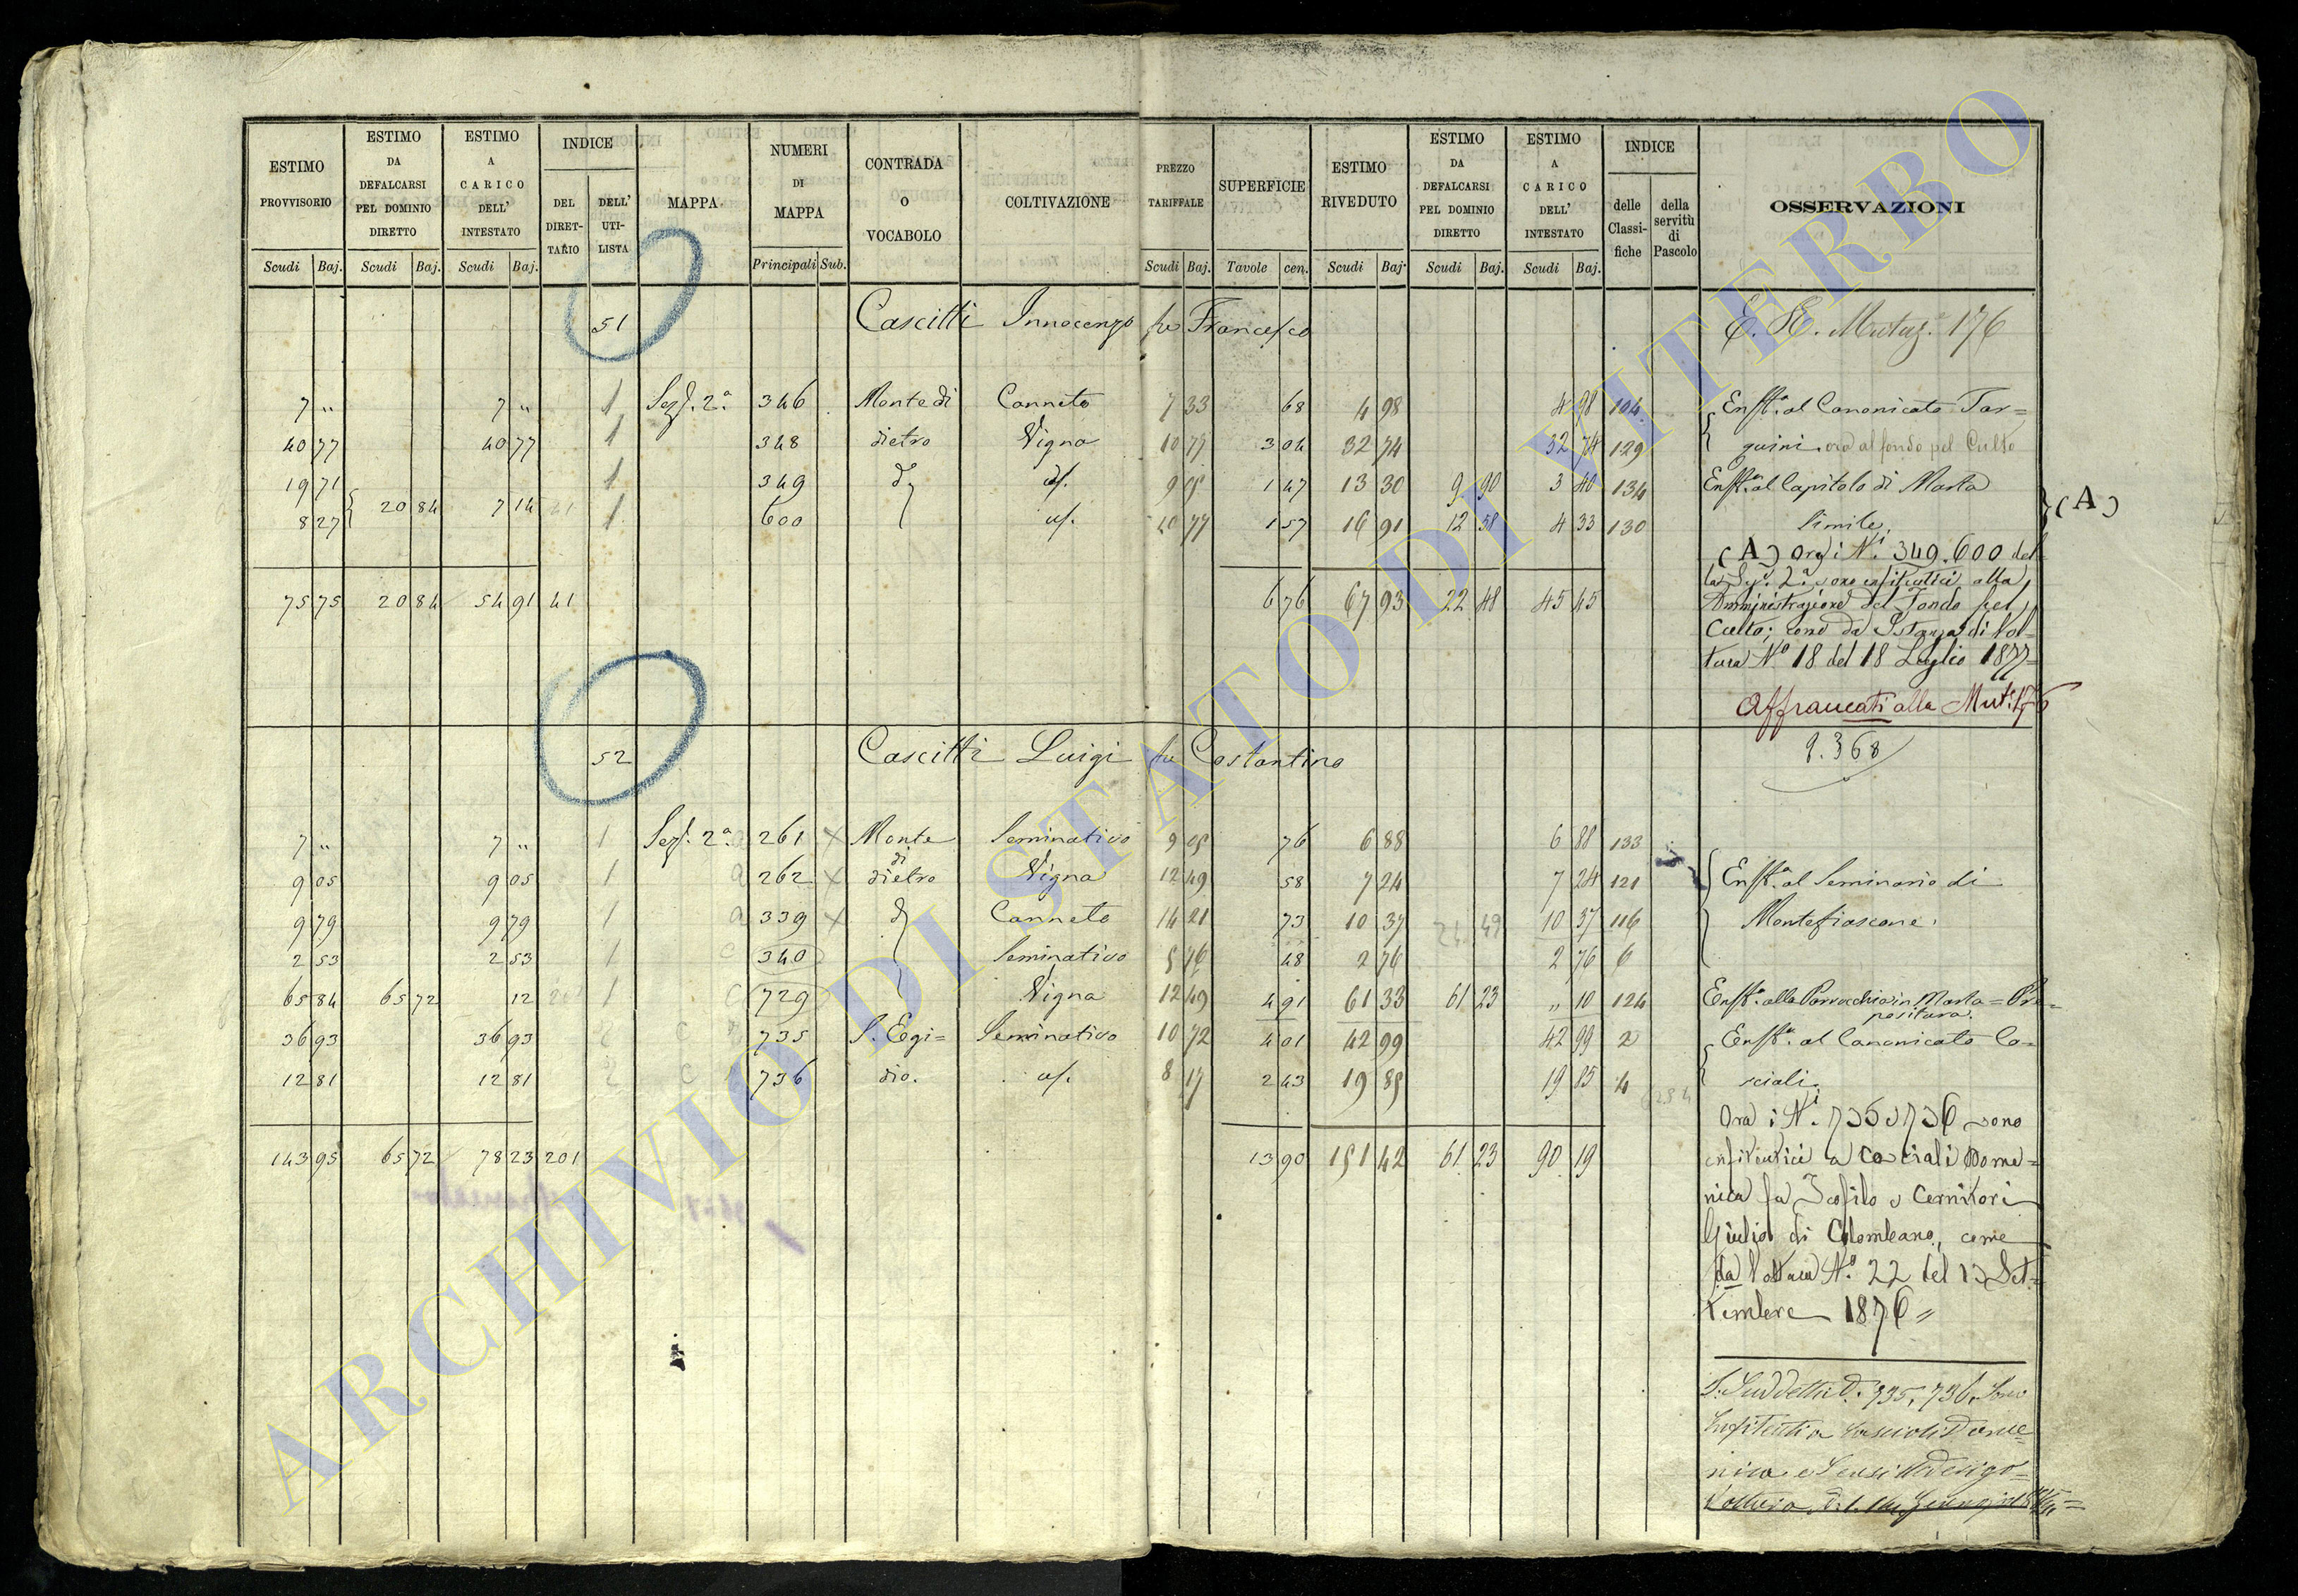 ESTIMO PROVVISORIO
ESTIMO DA DEFALCARSI PEL DOMINIO DIRETTO
ESTIMO A CARICO DELL' INTESTATO
INDICE
DEL DIRET-TARIO
DELL' UTI-LISTA
MAPPA
NUMERI DI MAPPA
CONTRADA O VOCABOLO
COLTIVAZIONE
PREZZO TARIFFALE
SUPERFICIE
ESTIMO RIVEDUTO
ESTIMO DA DEFALCARSI PEL DOMINIO DIRETTO
ESTIMO A CARICO DELL' INTESTATO
INDICE
delle Classi-fiche
della servitù di Pascolo
OSSERVAZIONI
Scudi Baj. Scudi Baj. Scudi Baj. Principali Sub. Scudi Baj. Tavole cen. Scudi Baj. Scudi Baj. Scudi Baj.
51 Cascitti Innocenzo fu Francesco
Mutaz. 176
7 " 7 " 1 Sez. 2.a 346 Monte di Canneto 7 33 68 4 98 4 98 104 Enft.a al Canonicato Tar=
40 77 40 77 1 348 dietro Vigna 10 77 3 04 32 74 32 74 129 quini ora al fondo pel Culto
19 71 1 349 9 05 1 47 13 30 9 90 3 40 134 Enft.a al Capitolo di Marta
20 84 7 14 41
8 27 1 600 10 77 1 57 16 91 12 58 4 33 130 Simile
(A)
(A) Ora i N.i 349. 600 del
la Sez. 2.a sono enfiteutici alla
Amministrazione del Fondo pel
Culto; come da Istanza di Vol=
tura N.o 18 del 18 Luglio 1877=
75 75 20 84 54 91 41 6 76 67 93 22 48 45 45
Affrancati alla Mut. 176
52 Cascitti Luigi fu Costantino
9.368
7 " 7 " 1 Sez. 2.a 261 x Monte Seminativo 9 05 76 6 88 6 88 133
9 05 9 05 1 262 x di dietro Vigna 12 49 58 7 24 7 24 121 Enft.a al Seminario di
9 79 9 79 1 339 x Canneto 14 21 73 10 37 10 37 116 Montefiascone.
2 53 2 53 1 340 Seminativo 5 76 48 2 76 2 76 6
65 84 65 72 12 201 1 729 Vigna 12 49 4 91 61 33 61 23 " 10 124 Enft.a alla Parrocchia in Marta = Pre=
positura.
36 93 36 93 2 735 S. Egi= Seminativo 10 72 4 01 42 99 42 99 2 Enft.a al Canonicato Ca=
12 81 12 81 2 736 dio. 8 17 2 43 19 85 19 85 4 sciali.
Ora i N.i 735 e 736 sono
143 95 65 72 78 23 201 13 90 151 42 61 23 90 19
enfiteutici a Casciali Dome=
nica fu Teofilo e Cernitori
Giulio di Colombano, come
da Voltura N.o 22 del 13 Set=
tembre 1876 "
Suddetti 735, 736
ARCHIVIO DI STATO DI VITERBO